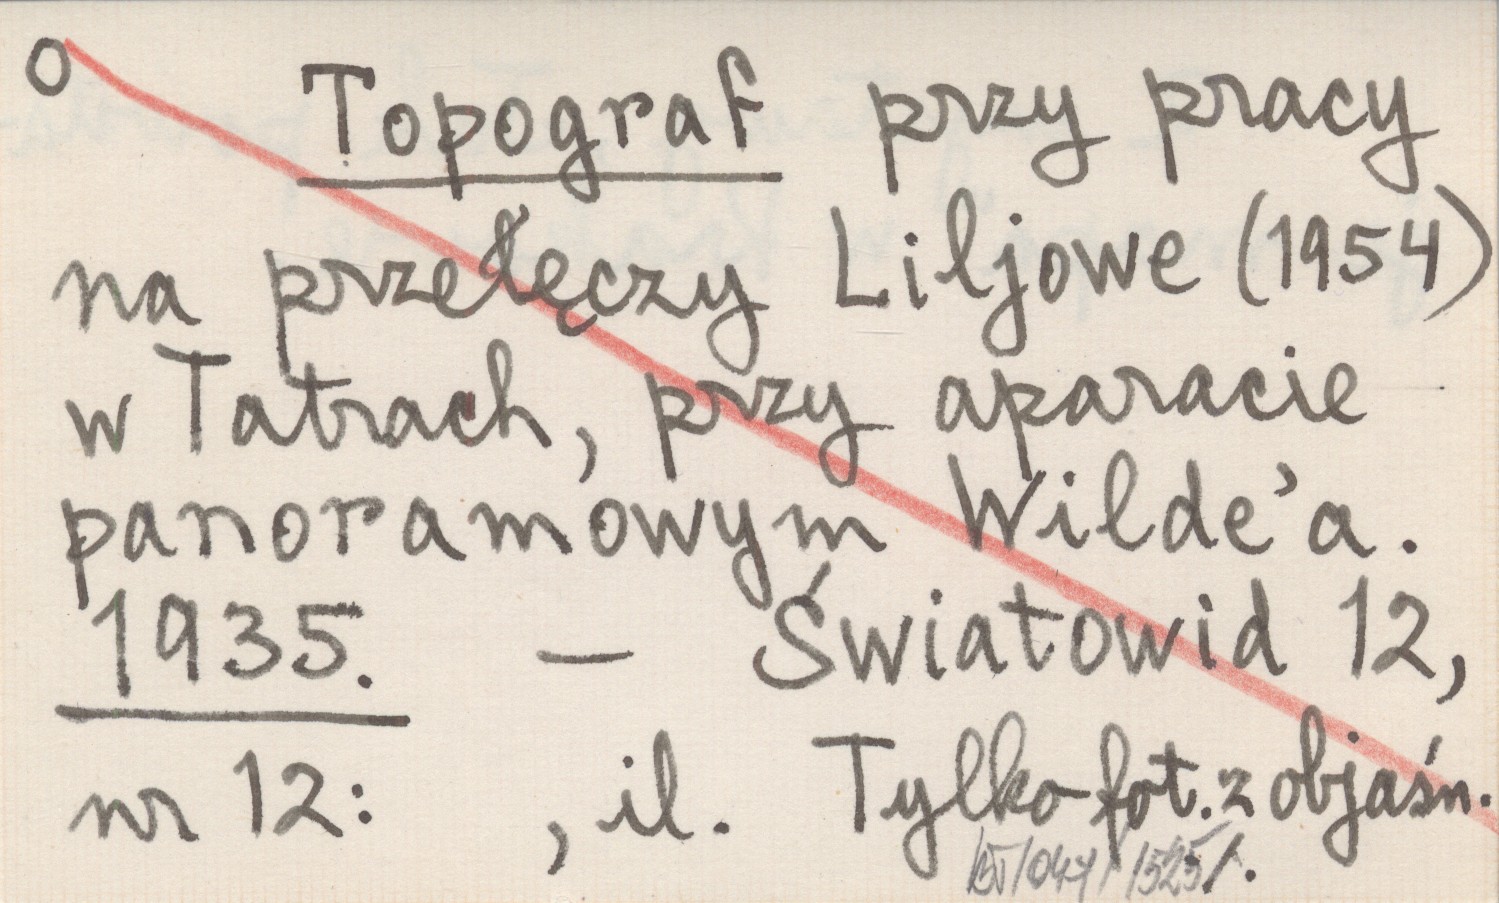 O
Topograf przy pracy
na przełęczy Liljowe (1954)
w Tatrach, przy aparacie
panoramowym Wilde'a.
1935. — Światowid 12,
nr 12: , il. Tylko fot. z objaśn.